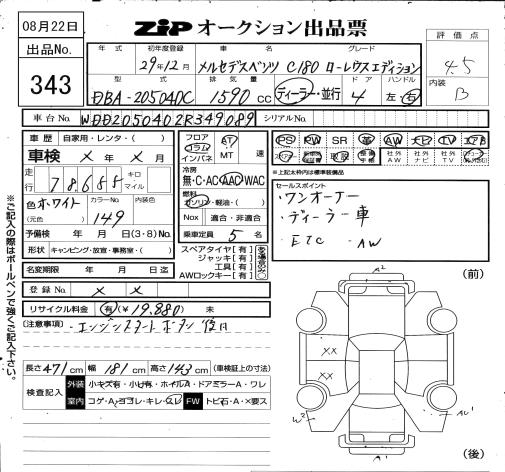 08月22日
ZIP オークション出品票
出品No.
343
年式 初年度登録 車名 グレード
29年12月 メルセデスベンツ C180 ローレウスエディション
型式 排気量 ドア ハンドル
DBA-205040C 1590 cc ディーラー・並行 4 左・右
評価点
4.5
内装
B
車台No. WDD2050402R349089 シリアルNo.
車歴 自家用・レンタ・( )
車検 × 年 × 月
走行 78655 キロ マイル
色 ホワイト カラーNo. 149 内装色
(元色)
予備検 年 月 日(3・8)No.
形状 キャンピング・放宣・事務室・( )
名変期限 年 月 日迄
登録No. × ×
リサイクル料金 有(¥19,880) 未
フロア コラム インパネ
AT MT 速
冷房 無・C・AC・AAC・WAC
燃料 ガソリン・軽油・( )
Nox 適合・非適合
乗車定員 5 名
スペアタイヤ[有]
ジャッキ[有]
工具[有]
AWロックキー[有]
PS PW SR 革 AW ナビ TV エアB
社外AW 社外ナビ 社外TV
★上記太枠内は標準装備品
セールスポイント
・ワンオーナー
・ディーラー車
・ETC ・AW
(注意事項)
・エンジンスタートボタン
長さ 471 cm 幅 181 cm 高さ 143 cm (車検証上の寸法)
検査記入 外装 小キズ有・小凹有・ホイルA・ドアミラーA・ワレ
室内 コゲ・A・ヨゴレ・キレ・スレ FW トビ石・A・×要ス
※ご記入の際はボールペンで強くご記入下さい。
(前)
A2
××
××
W2
AW1
A1
(後)